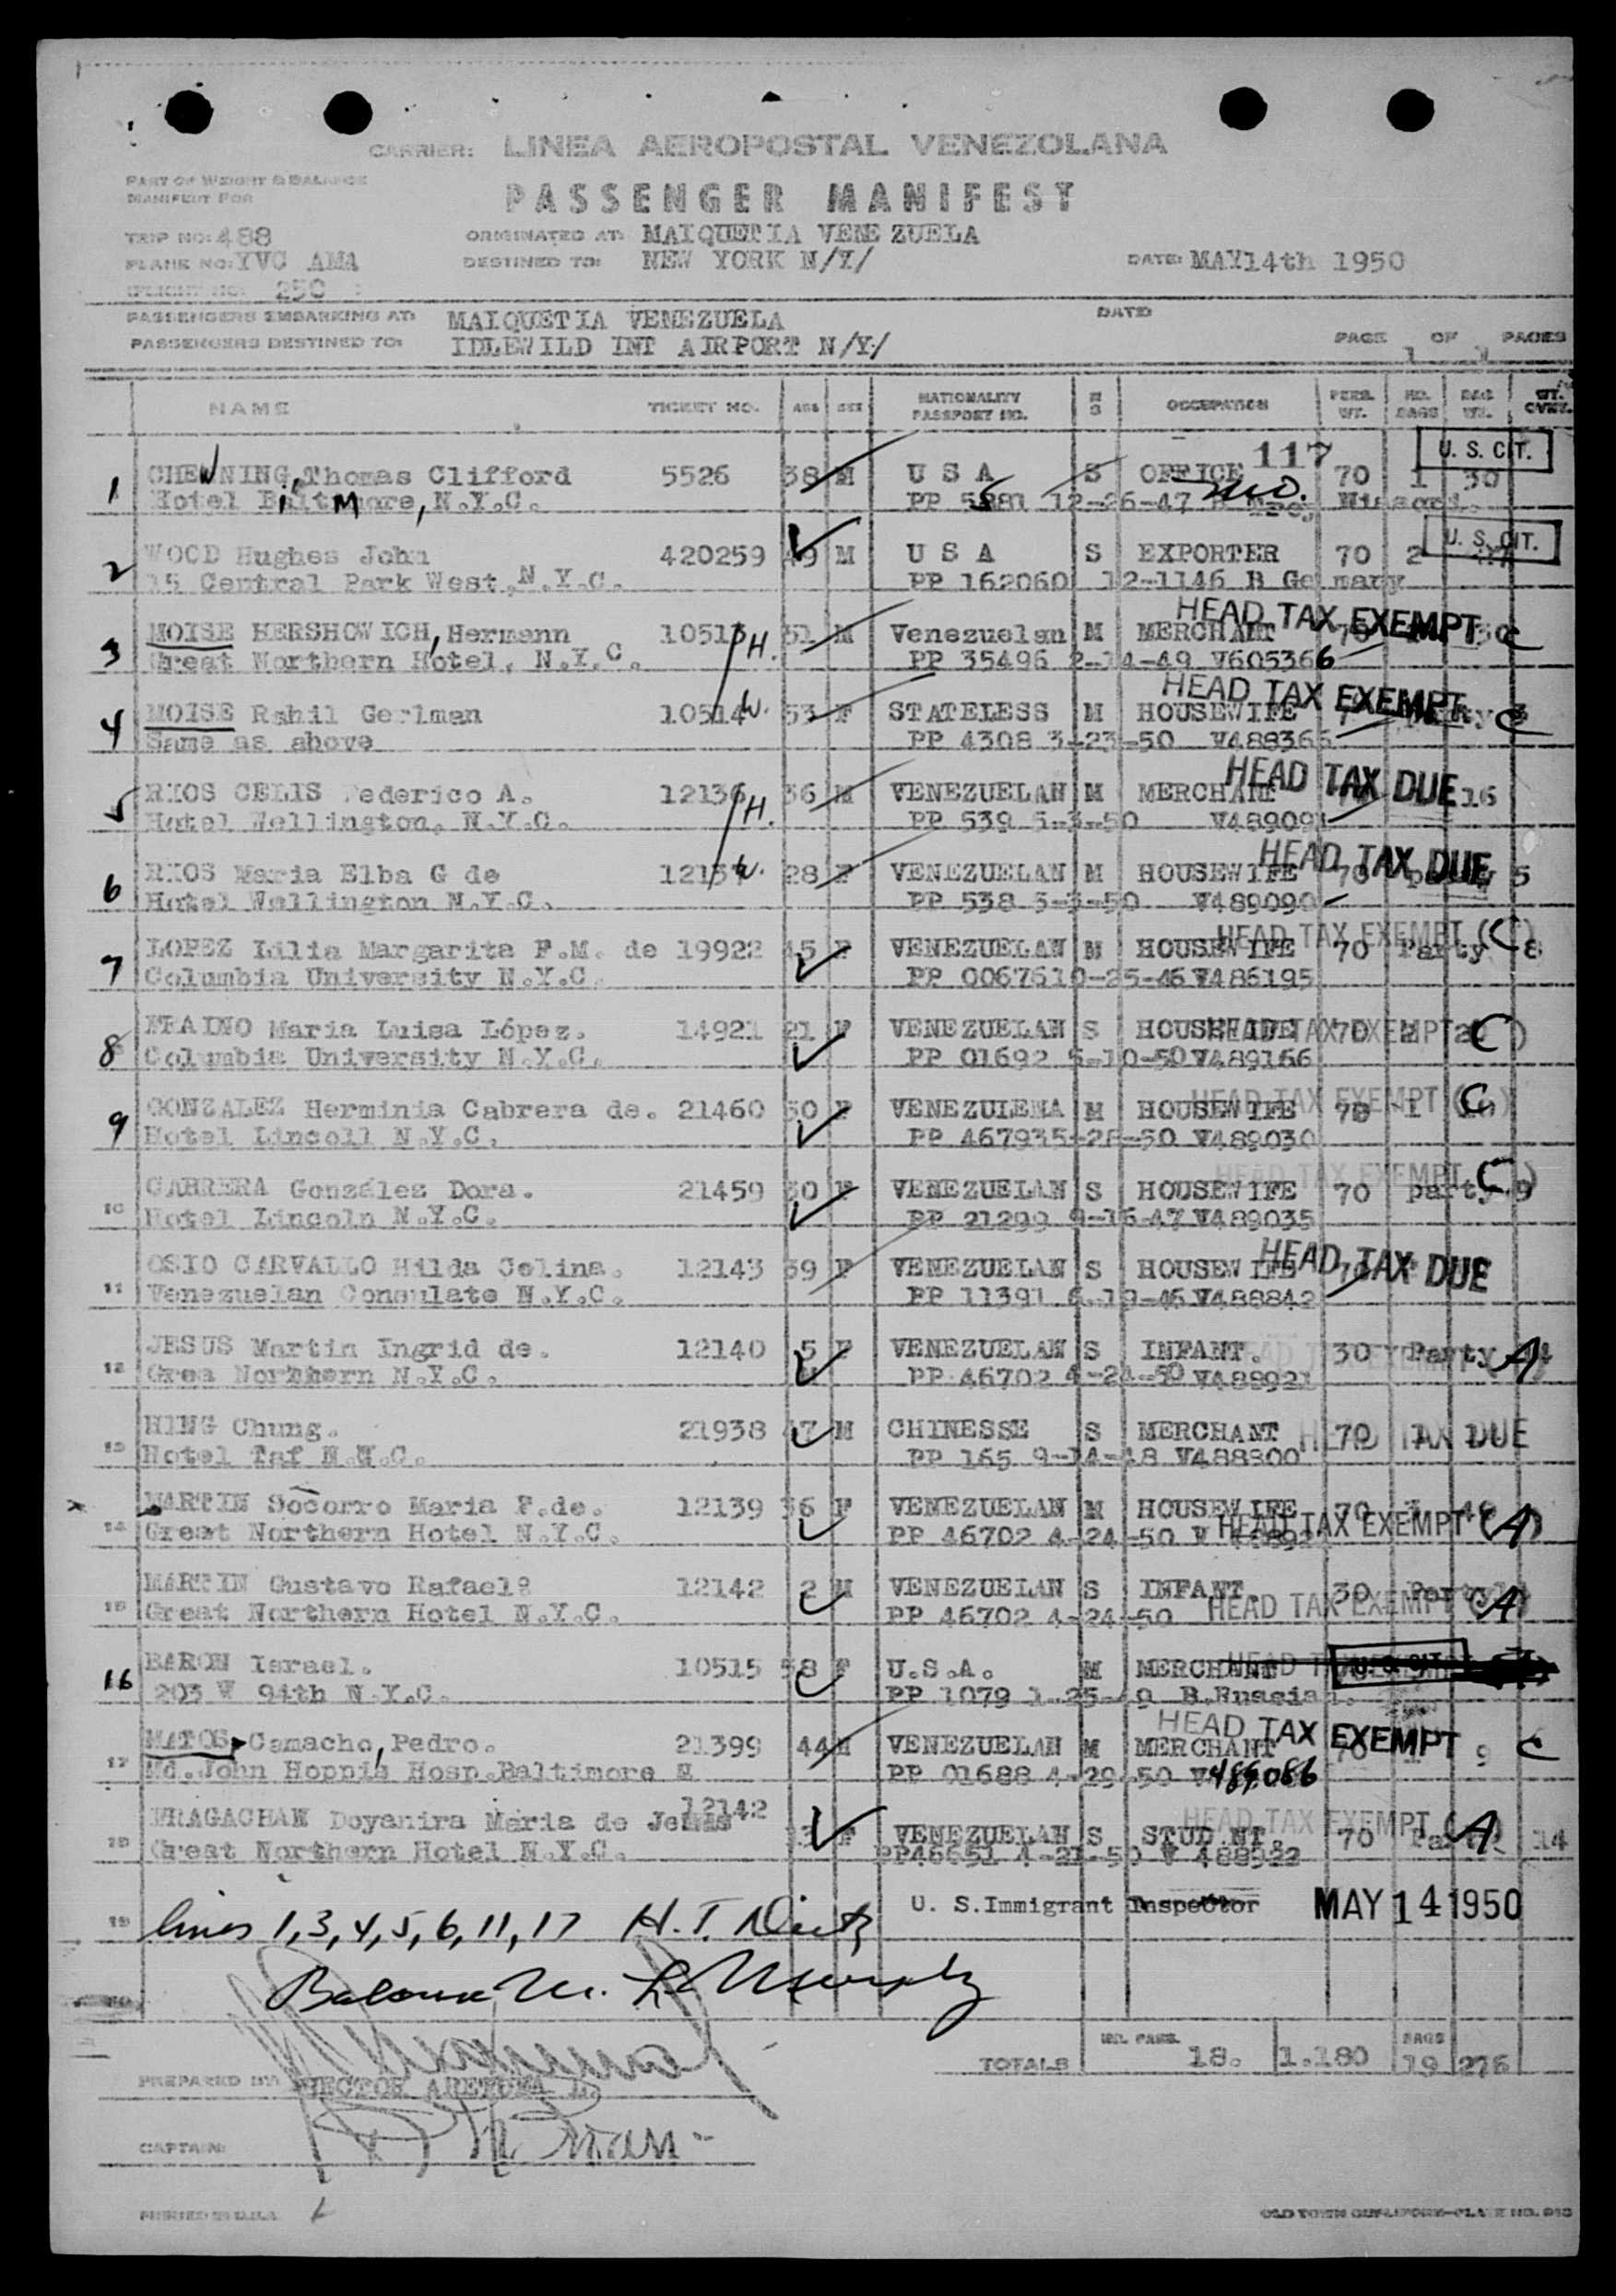 CARRIER: LINEA AEROPOSTAL VENEZOLANA
PART OF WEIGHT & BALANCE
MANIFEST FOR
PASSENGER MANIFEST
TRIP NO: 488 ORIGINATED AT: MAIQUETIA VENEZUELA
PLANE NO: YVC AMA DESTINED TO: NEW YORK N/Y/ DATE: MAY14th 1950
FLIGHT NO. 250
PASSENGERS EMBARKING AT: MAIQUETIA VENEZUELA DATE
PASSENGERS DESTINED TO: IDLEWILD INT AIRPORT N/Y/ PAGE 1 OF 1 PAGES
NAME TICKET NO. AGE SEX NATIONALITY PASSPORT NO. M S OCCUPATION PERS. WT. NO. BAGS BAG WT. WT. OVWT.
117 U. S. CIT.
1 CHEWNING, Thomas Clifford 5526 38 M U S A S OFFICE 70 1 30
Hotel BiltMore, N.Y.C. PP 12-26-47 mo. Missouri.
U. S. CIT.
2 WOOD Hughes John 420259 49 M U S A S EXPORTER 70 2
15 Central Park West, N.Y.C. PP 162060 12-1146 B Germany
HEAD TAX EXEMPT C
3 MOISE HERSHOWICH, Hermann 10513 H. 51 M Venezuelan M MERCHANT 70
Great Northern Hotel, N.Y.C. PP 35496 2-14-49 V605366
HEAD TAX EXEMPT C
4 MOISE Rahil Gerlman 10514 W. 53 F STATELESS M HOUSEWIFE
Same as above PP 4308 3-23-50 V488366
HEAD TAX DUE
5 RIOS CELIS Federico A. 12136 H. 36 M VENEZUELAN M MERCHANT 16
Hotel Wellington, N.Y.C. PP 539 5-3-50 V489091
HEAD TAX DUE
6 RIOS Maria Elba G de 12137 W. 28 F VENEZUELAN M HOUSEWIFE 70 5
Hotel Wellington N.Y.C. PP 538 5-3-50 V489090
HEAD TAX EXEMPT (C)
7 LOPEZ Lilia Margarita F.M. de 19922 45 F VENEZUELAN M HOUSEWIFE 70 Party 8
Columbia University N.Y.C. PP 0067610-25-46 V486195
HEAD TAX EXEMPT (C)
8 FRAINO Maria Luisa López. 14921 21 F VENEZUELAN S HOUSEWIFE 70
Columbia University N.Y.C. PP 01692 5-10-50 V489166
HEAD TAX EXEMPT (C)
9 GONZALEZ Herminia Cabrera de. 21460 50 F VENEZULENA M HOUSEWIFE 70 1
Hotel Lincoll N.Y.C. PP 467935-28-50 V489030
HEAD TAX EXEMPT (C)
10 CABRERA González Dora. 21459 30 F VENEZUELAN S HOUSEWIFE 70 party 9
Hotel Lincoln N.Y.C. PP 21299 9-16-47 V489035
HEAD TAX DUE
11 OSIO CARVALLO Hilda Celina. 12143 39 F VENEZUELAN S HOUSEWIFE
Venezuelan Consulate N.Y.C. PP 11391 6-19-46 V488842
12 JESUS Martin Ingrid de. 12140 5 F VENEZUELAN S INFANT. 30 Party (A)
Grea Northern N.Y.C. PP 46702 4-24-50 V488921
13 HING Chung. 21938 47 M CHINESSE S MERCHANT 70 HEAD TAX DUE
Hotel Taf N.Y.C. PP 165 9-14-48 V488800
14 MARTIN Socorro Maria F.de. 12139 36 F VENEZUELAN M HOUSEWIFE 70
Great Northern Hotel N.Y.C. PP 46702 4-24-50 V HEAD TAX EXEMPT (A)
15 MARTIN Gustavo Rafael 12142 2 M VENEZUELAN S INFANT. 30 Party
Great Northern Hotel N.Y.C. PP 46702 4-24-50 HEAD TAX EXEMPT (A)
16 BARON Israel. 10515 58 F U.S.A. M MERCHANT U. S. CIT.
203 W 94th N.Y.C. PP 1079 B.Russian.
HEAD TAX EXEMPT C
17 MATOS, Camacho, Pedro. 21399 44 M VENEZUELAN M MERCHANT 70 9
Md.John Hoppis Hosp.Baltimore M PP 01688 4-29-50 V489086
12142 HEAD TAX EXEMPT (A)
18 FRAGACHAN Doyanira Maria de Jesus F VENEZUELAN S STUDENT. 70 Party 14
Great Northern Hotel N.Y.C. PP46651 4-21-50 V 488922
19 lines 1, 3, 4, 5, 6, 11, 17 U. S. Immigrant Inspector MAY 14 1950
20
TOTALS NO. PASS. 18. 1.180 BAGS 19 276
PREPARED BY: HECTOR
CAPTAIN:
PRINTED IN U.S.A.